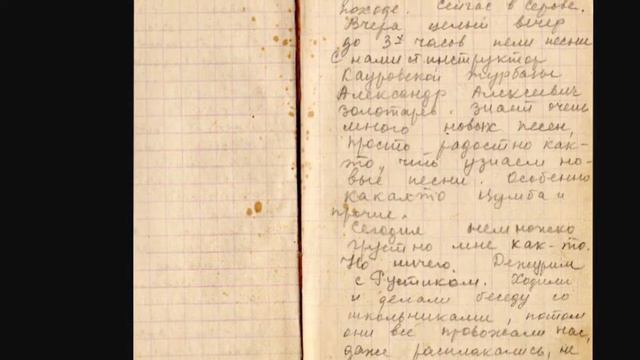 походе. Сейчас в Серове.
Вчера целый вечер
до 3х часов пели песни
с нами инструктор
Кауровской турбазы
Александр Алексеевич
Золотарев. Знает очень
много новых песен,
просто радостно как-
то, что узнаем но-
вые песни. Особенно
какая-то Цумба и
прочие.
Сегодня немножко
грустно мне как-то.
Но ничего. Дежурим
с Рустиком. Ходили
и делали беседу со
школьниками, потом
они все провожали нас,
даже расплакались, не